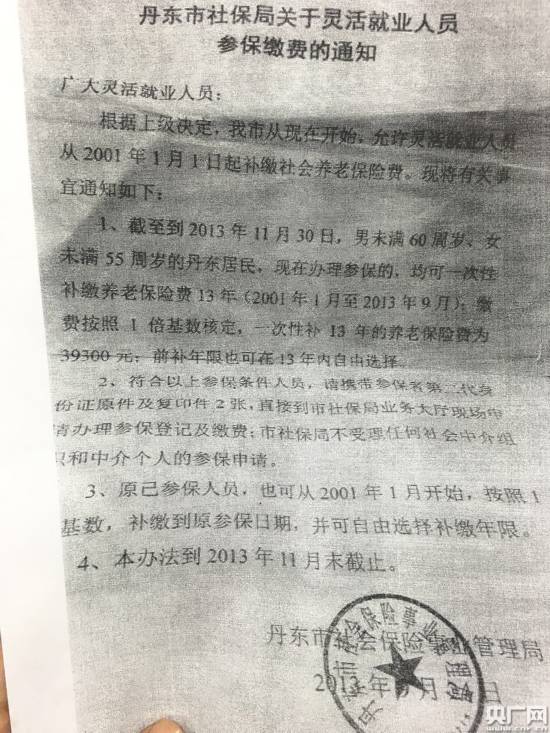 丹东市社保局关于灵活就业人员
参保缴费的通知
广大灵活就业人员：
根据上级决定，我市从现在开始，允许灵活就业人员
从 2001 年 1 月 1 日起补缴社会养老保险费。现将有关事
宜通知如下：
1、截至到 2013 年 11 月 30 日，男未满 60 周岁、女
未满 55 周岁的丹东居民，现在办理参保的，均可一次性
补缴养老保险费 13 年（2001 年 1 月至 2013 年 9 月）；缴
费按照 1 倍基数核定，一次性补 13 年的养老保险费为
39300 元；前补年限也可在 13 年内自由选择。
2、符合以上参保条件人员，请携带参保者第二代身
份证原件及复印件 2 张，直接到市社保局业务大厅现场申
请办理参保登记及缴费；市社保局不受理任何社会中介组
织和中介个人的参保申请。
3、原已参保人员，也可从 2001 年 1 月开始，按照 1
基数，补缴到原参保日期，并可自由选择补缴年限。
4、本办法到 2013 年 11 月末截止。
丹东市社会保险事业管理局
2013 年 月 日
丹东市社会保险事业管理局
央广网
www.cnr.cn